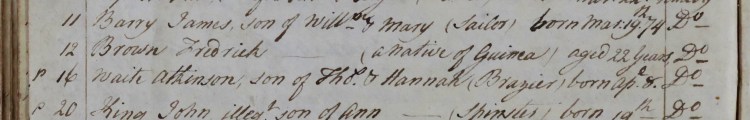 11 Barry James, son of Willm & Mary (Sailor) born Mar. 19th. 74 Do
12 Brown Fredrick (a native of Guinea) aged 22 Years, Do
P 16 Waite Atkinson, son of Thos. & Hannah (Brazier) born Apl. 8. Do
P 20 King John, illegt. son of Ann (Spinster) born 19th Do